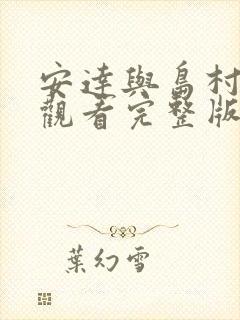 安達與島村
觀看完整版
葉幻雪